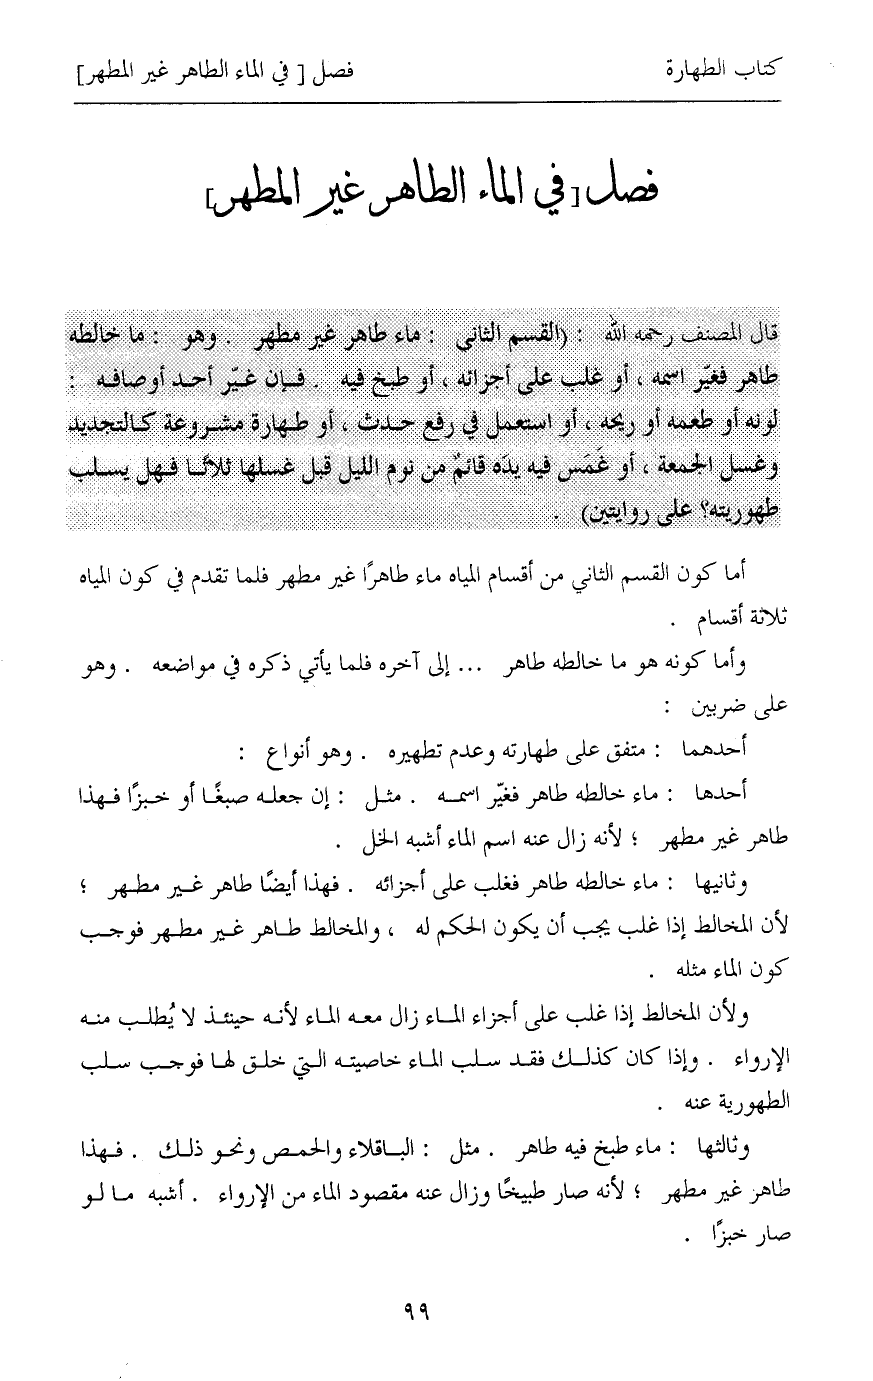 كتاب الطهارة فصل [ في الماء الطاهر غير المطهر]
فصل [في الماء الطاهر غير المطهر]
قال المصنف رحمه الله : (القسم الثاني : ماء طاهر غير مطهر . وهو : ما خالطه
طاهر فغيّر اسمه ، أو غلب على أجزائه ، أو طبخ فيه . فإن غيّر أحد أوصافه :
لونه أو طعمه أو ريحه ، أو استعمل في رفع حدث ، أو طهارة مشروعة كالتجديد
وغسل الجمعة ، أو غَمَس فيه يدَه قائمٌ من نوم الليل قبل غسلها ثلاثًا فهل يسلب
طهوريته؟ على روايتين) .
أما كون القسم الثاني من أقسام المياه ماء طاهرًا غير مطهر فلما تقدم في كون المياه
ثلاثة أقسام .
وأما كونه هو ما خالطه طاهر ... إلى آخره فلما يأتي ذكره في مواضعه . وهو
على ضربين :
أحدهما : متفق على طهارته وعدم تطهيره . وهو أنواع :
أحدها : ماء خالطه طاهر فغيّر اسمه . مثل : إن جعله صبغًا أو خبزًا فهذا
طاهر غير مطهر ؛ لأنه زال عنه اسم الماء أشبه الخل .
وثانيها : ماء خالطه طاهر فغلب على أجزائه . فهذا أيضًا طاهر غير مطهر ؛
لأن المخالط إذا غلب يجب أن يكون الحكم له ، والمخالط طاهر غير مطهر فوجب
كون الماء مثله .
ولأن المخالط إذا غلب على أجزاء الماء زال معه الماء لأنه حينئذ لا يُطلب منه
الإرواء . وإذا كان كذلك فقد سلب الماء خاصيته التي خلق لها فوجب سلب
الطهورية عنه .
وثالثها : ماء طبخ فيه طاهر . مثل : الباقلاء والحمص ونحو ذلك . فهذا
طاهر غير مطهر ؛ لأنه صار طبيخًا وزال عنه مقصود الماء من الإرواء . أشبه ما لو
صار خبزًا .
٩٩